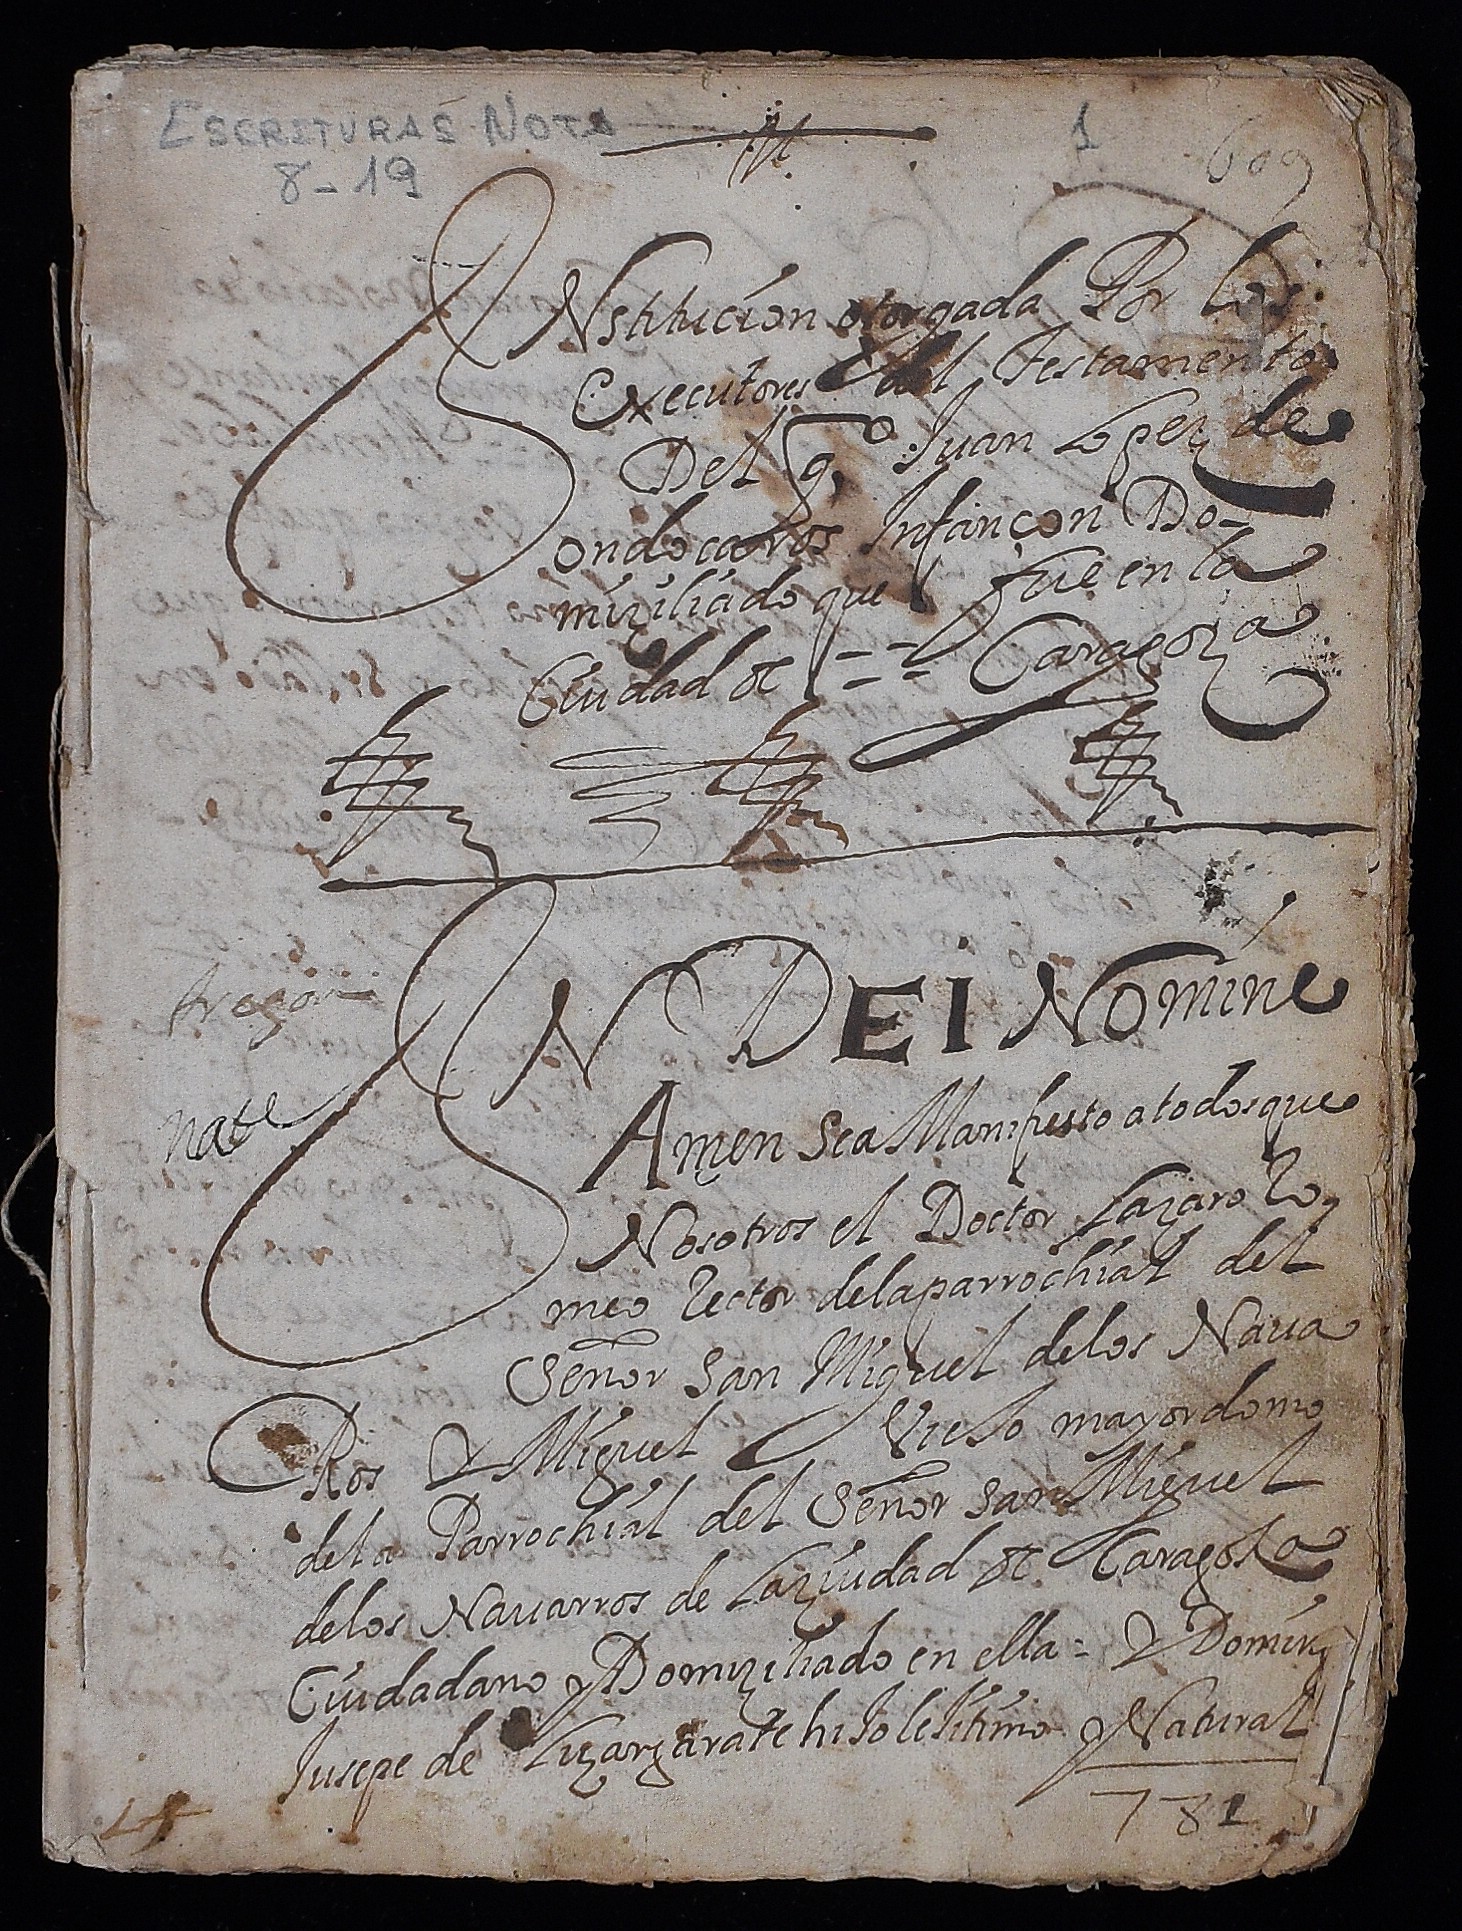 ESCRITURAS NOTA
8-19
1
609
INstitucion otorgada Por los
Executores del Testamento
Del q.º Juan Lopez de
ondocaros Infançon Do-
miziliado que fue en la
Ciudad de == Caragoza
IN DEI Nomine
Aragon
Amen Sea Manifiesto a todos que
Nosotros el Doctor Lazaro Ro,
meo Rector de la parrochial del
Señor San Miguel de los Naua
Ros Y Miguel Vielo mayordomo
de la Parrochial del Señor San Miguel
de los Nauarros de La ziudad de Caragoza
Ciudadano y Domiziliado en ella = Y Domin,
Jusepe de Lizarzarate hiJo leJitimo y Natural
781